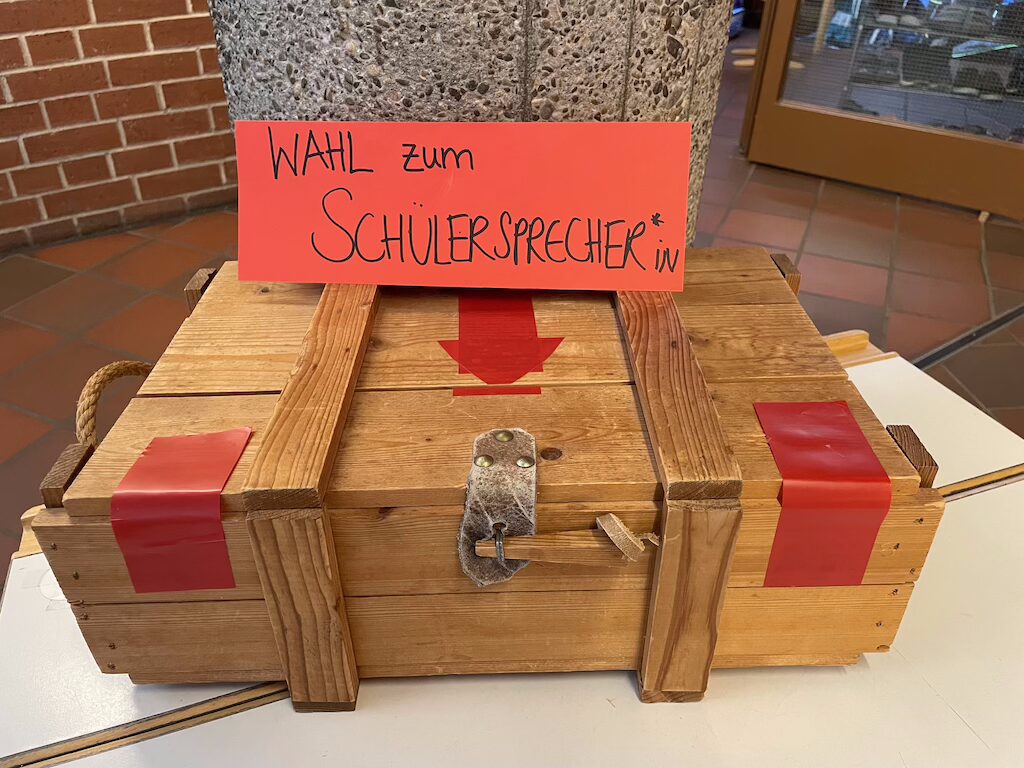 WAHL zum
SCHÜLERSPRECHER*iN